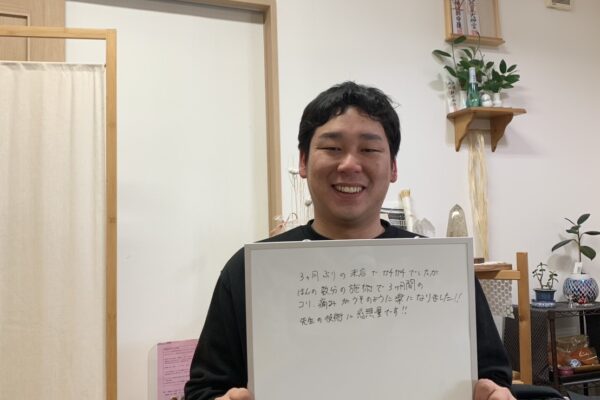 3ヶ月ぶりの来店でガチガチでしたが
ほんの数分の施術で3ヶ月間の
コリ、痛みがウソのように楽になりました!!
先生の技術に感無量です!!